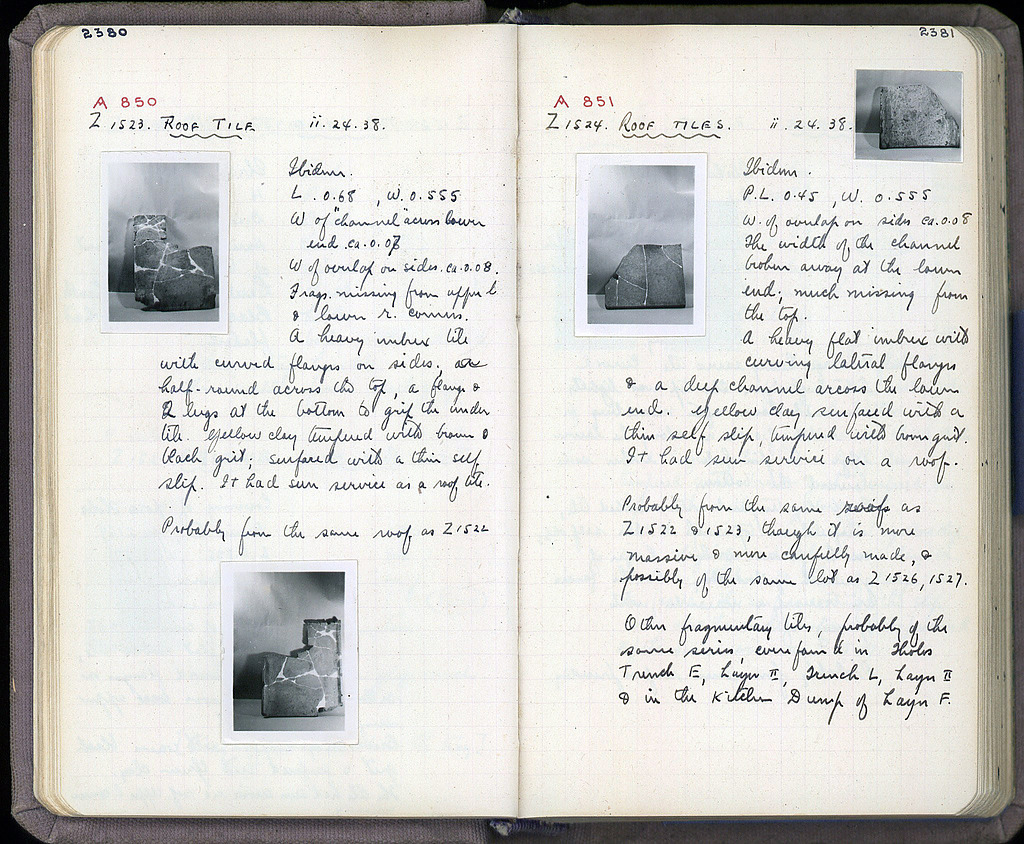 2380
A 850
Z 1523. ROOF TILE ii.24.38.
Ibidem.
L. 0.68, W. 0.555
W of "channel" across lower
end. ca. 0.07
W of overlap on sides. ca. 0.08.
Frags. missing from upper l.
& lower r. corners.
A heavy imbrex tile
with curved flanges on sides, a
half-round across the top, a flange &
2 lugs at the bottom to grip the under
tile. Yellow clay tempered with brown &
black grit; surfaced with a thin self
slip. It had seen service as a roof tile.
Probably from the same roof as Z 1522
2381
A 851
Z 1524. ROOF TILES. ii.24.38.
Ibidem.
P.L. 0.45, W. 0.555
W. of overlap on sides ca. 0.08
The width of the channel
broken away at the lower
end; much missing from
the top.
A heavy flat imbrex with
curving lateral flanges
& a deep channel across the lower
end. Yellow clay surfaced with a
thin self slip, tempered with brown grit.
It had seen service on a roof.
Probably from the same roof as
Z 1522 & 1523, though it is more
massive & more carefully made, &
possibly of the same lot as Z 1526, 1527.
Other fragmentary tiles, probably of the
same series, were found in Tholos
Trench E, Layer II, Trench L, Layer II
& in the Kitchen Dump of Layer F.